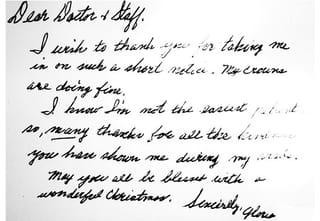 Dear Doctor & Staff,
I wish to thank you for taking me
in on such a short notice. My crowns
are doing fine.
I know I'm not the easiest patient
so, many thanks for all the kindness
you have shown me during my
May you all be blessed with a
wonderful Christmas. Sincerely,
Gloria